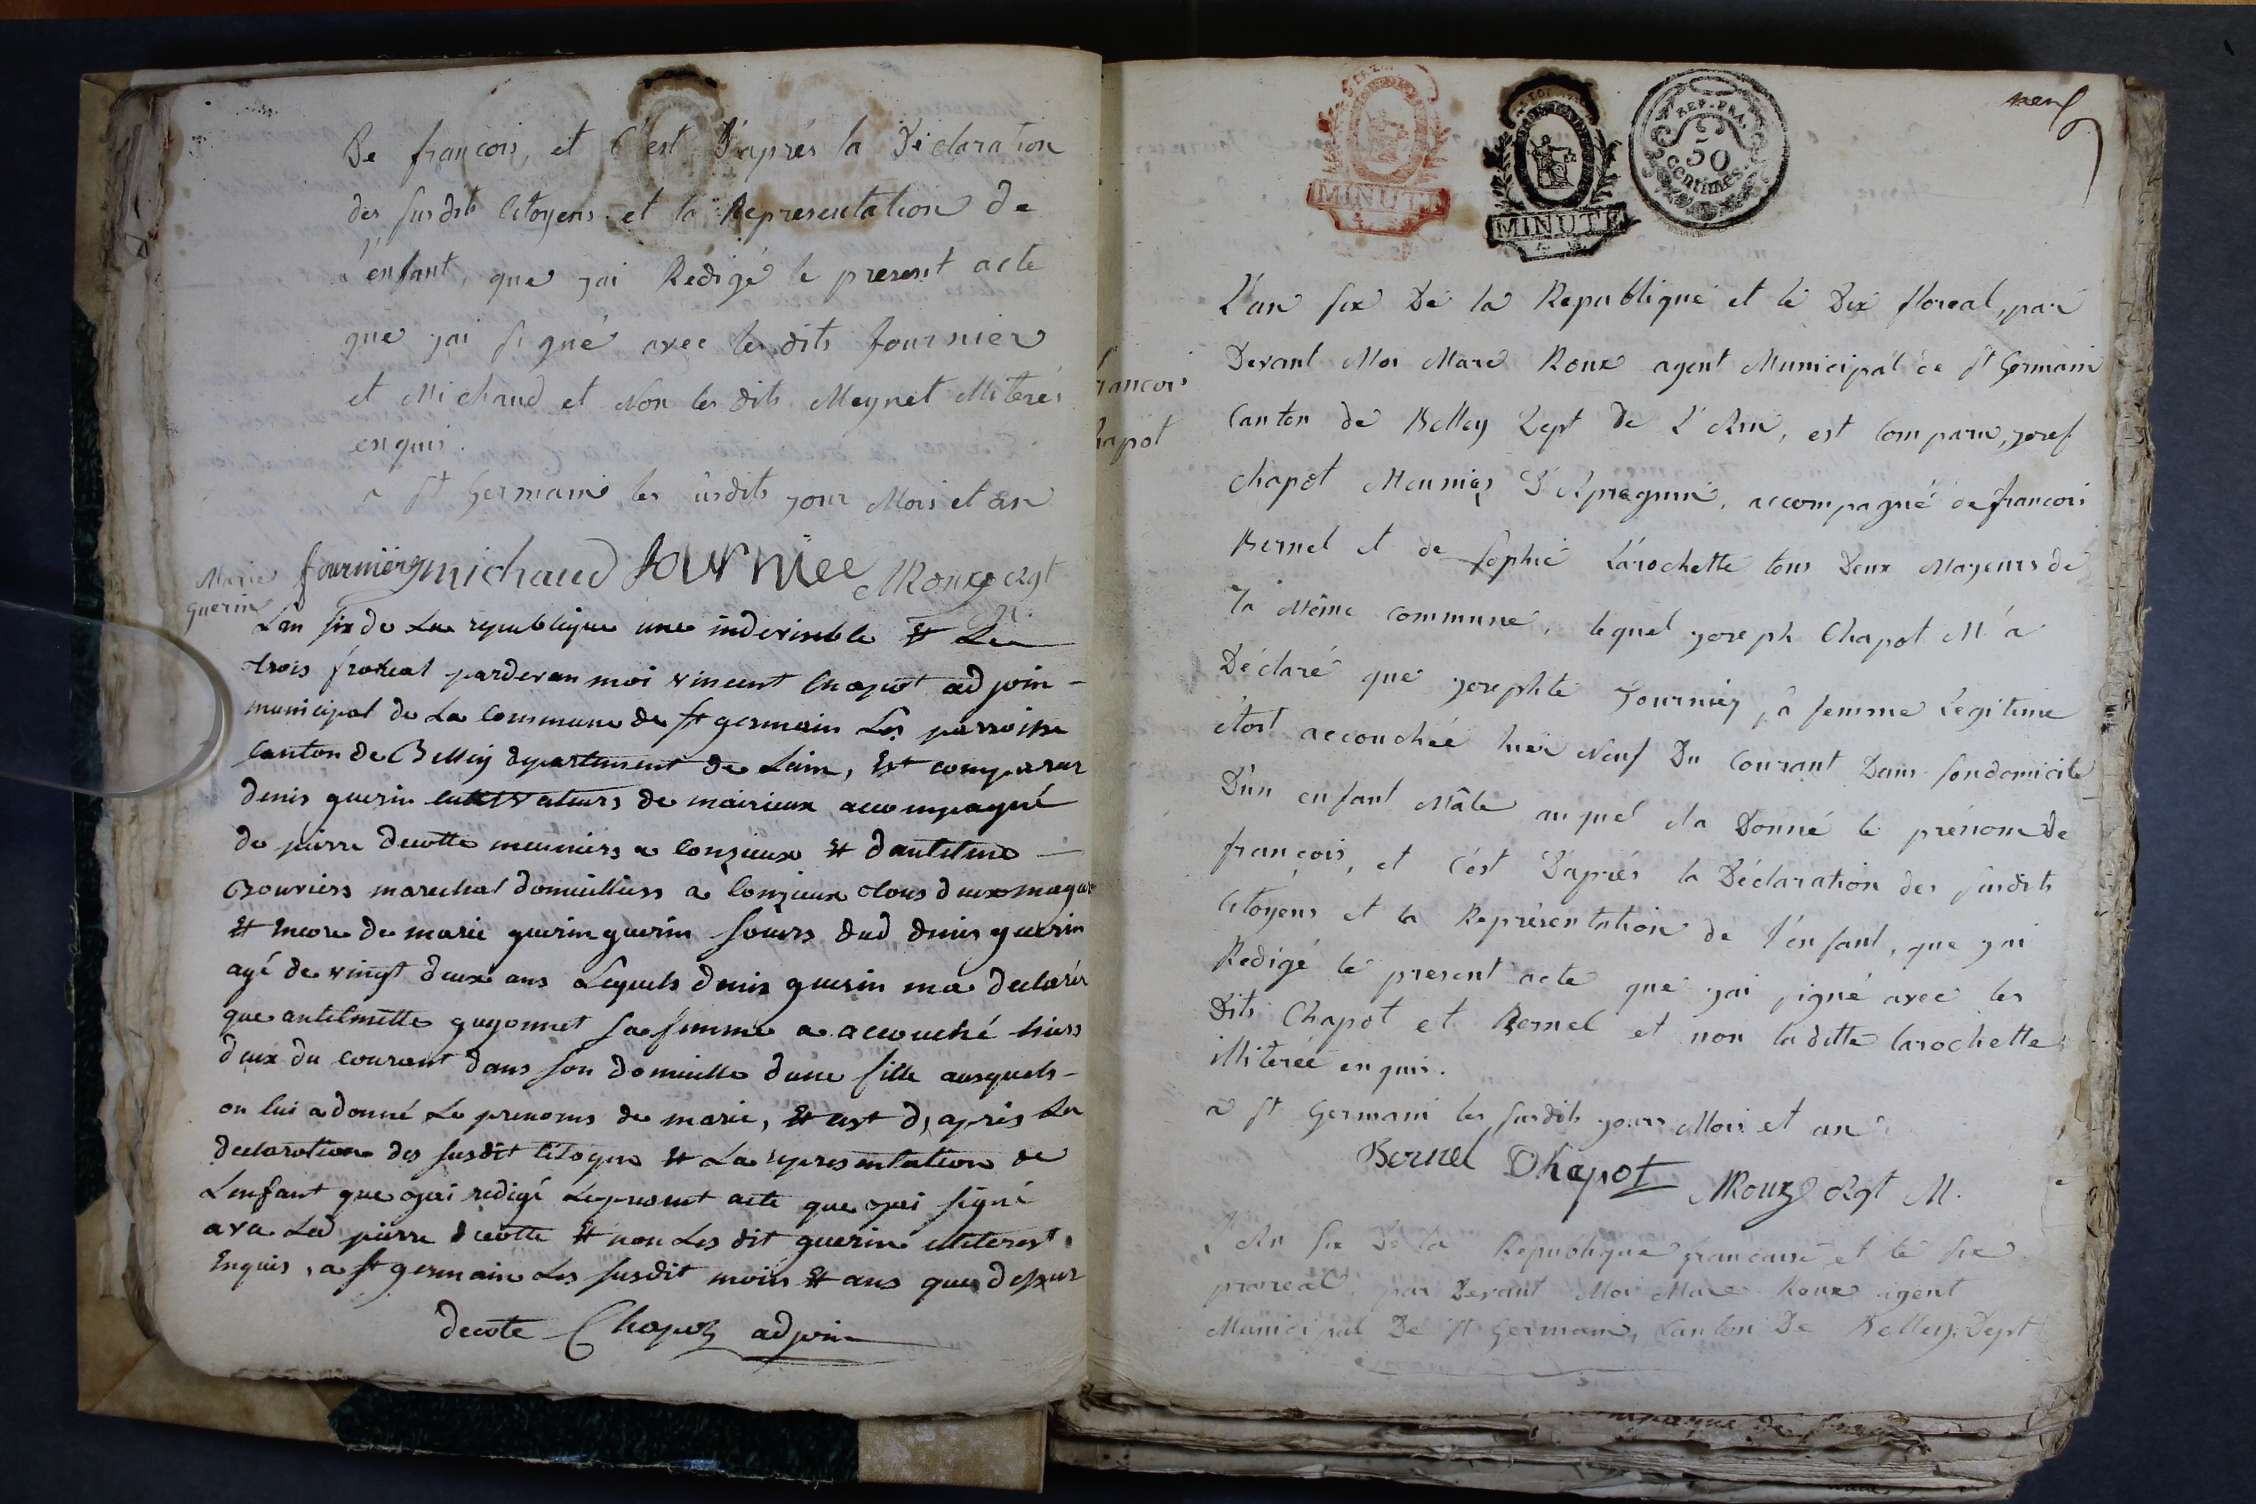 De françois, et C'est D'après la Déclaration
des susdits Citoyens et la Representation de
l'enfant, que jai Rédigé le present acte
que jai signé avec les dits fournier
et Michaud et Non les dits Meynet illiterés
enquis.
a St Germain les susdits jour Mois et an
fournier michaud fournier MRoux agt
M.
Marie
guerin
Lan six de La republique une indivisible Et Le
trois froreal pardevan moi vincent Chapot adjoin
municipal de La Commune de St germain Les parroisse
Canton de Belley departement de Lain, Est comparus
denis guerin cultivateurs de mairieux accompagné
de pierre decotte meuniers a Conzieux Et dantelme
Bouviers marechal domicilliers a Conzieux tous deux mageur
Et encore de marie guerin guerin soeurs dud denis guerin
agé de vingt deux ans Lequels denis guerin ma declarér
que antelmette guyonnet sa femme a accouché hiers
deux du courant dans son domicille dune fille ausquels
on lui a donné Le prenoms de marie, Et cest d,après La
declaration des susdit Citoyen Et La representation de
Lenfant que jai redigé Lepresent acte que jai signé
avec Led pierre decotte Et non Les dit guerin iliterest
Enquis, a St germain Les susdit mois Et ans que dessur
decote Chapot adjoin
neuf
REP. FRA.
50
centimes.
MINUTE
MINUTE
françois
Chapot
L'an six De la Republique et le Dix floreal, par
Devant Moi Marc Roux agent Municipal de St Germain
Canton de Belley Dept De L'Ain, est Comparu, josef
Chapot Meunier D'Apregnin, accompagné de francois
Bernel et de Sophie Larochette tous Deux Mageurs de
la Même commune, lequel joseph Chapot M'a
Déclaré que josephte fournier sa femme Legitime
étoit accouchée hier Neuf Du Courant Dans son domicile
D'un enfant Mâle auquel il a Donné le prénom De
françois, et C'est D'après la Déclaration des susdits
Citoyens et la Représentation de l'enfant, que jai
Redigé le present acte que jai signé avec les
Dits Chapot et Bernel et non la ditte larochette
illiterée enquis.
a St Germain les susdits jours Mois et an
Bernel Chapot MRoux agt M.
L'An six De la Republique francaise et le six
prareal, par Devant Moi Marc Roux agent
Municipal De St Germain, Canton De Belley, Dept